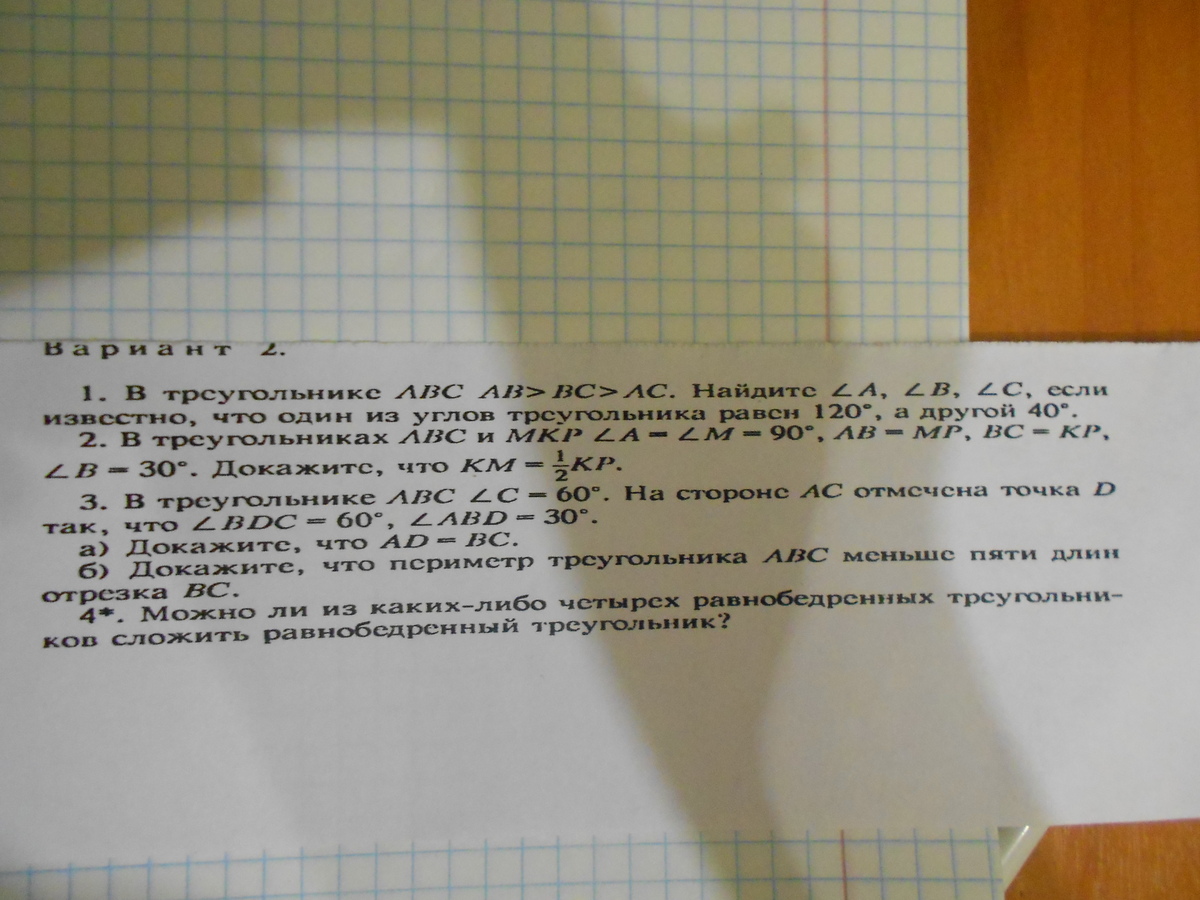 Вариант 2.
1. В треугольнике ABC AB>BC>AC. Найдите ∠A, ∠B, ∠C, если
известно, что один из углов треугольника равен 120°, а другой 40°.
2. В треугольниках ABC и MKP ∠A = ∠M = 90°, AB = MP, BC = KP,
∠B = 30°. Докажите, что KM = 1/2 KP.
3. В треугольнике ABC ∠C = 60°. На стороне AC отмечена точка D
так, что ∠BDC = 60°, ∠ABD = 30°.
а) Докажите, что AD = BC.
б) Докажите, что периметр треугольника ABC меньше пяти длин
отрезка BC.
4*. Можно ли из каких-либо четырех равнобедренных треугольни-
ков сложить равнобедренный треугольник?